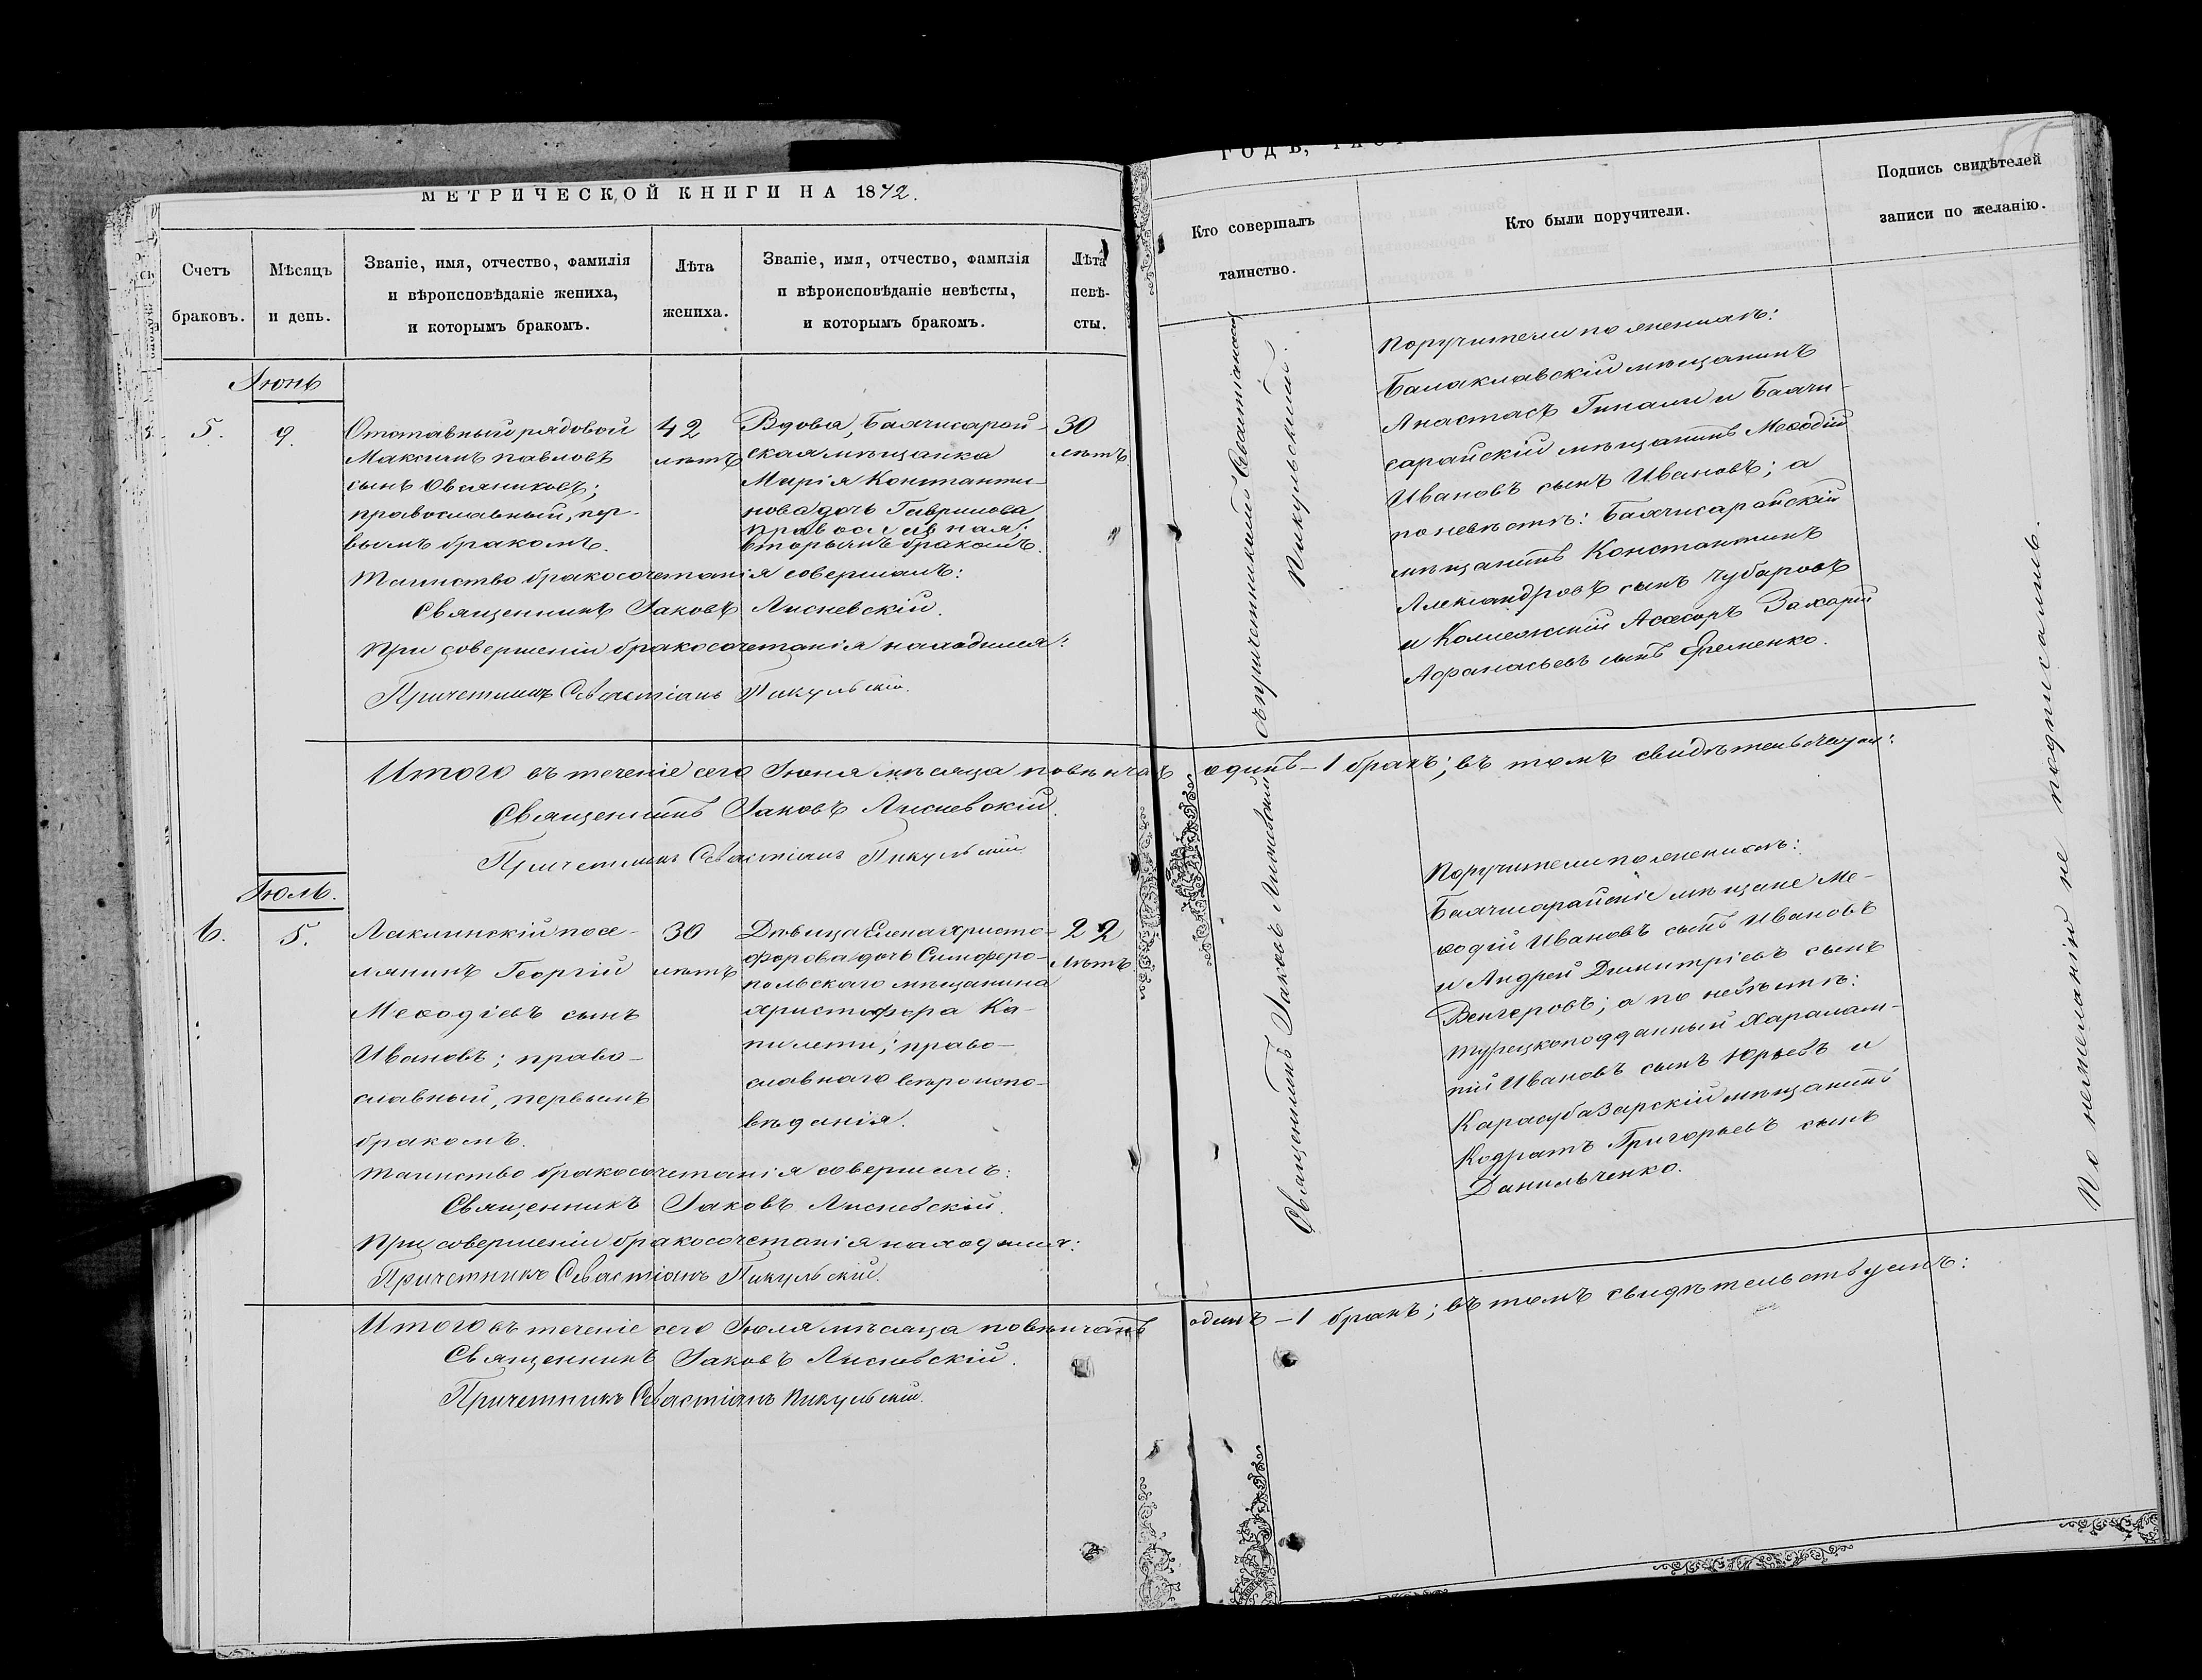 МЕТРИЧЕСКОЙ КНИГИ НА 1872.
Счетъ
браковъ.
Мѣсяцъ
и день.
Званіе, имя, отчество, фамилія
и вѣроисповѣданіе жениха,
и которымъ бракомъ.
Лѣта
жениха.
Званіе, имя, отчество, фамилія
и вѣроисповѣданіе невѣсты,
и которымъ бракомъ.
Лѣта
невѣ-
сты.
Іюнь
5.
9.
Отставный рядовой
Максимъ Павловъ
сынъ Овсяниковъ;
православный, пер-
вымъ бракомъ.
42
лѣтъ
Вдова, Бахчисарай-
ская мѣщанка
Марія Константи-
нова дочь Гаврилова
православная;
вторымъ бракомъ.
30
лѣтъ
Таинство бракосочетанія совершалъ:
Священникъ Іаковъ Лисневскій.
При совершеніи бракосочетанія находился:
Причетникъ Севастіанъ Пикульскій.
Итого въ теченіе сего Іюня мѣсяца повѣнчанъ
Священникъ Іаковъ Лисневскій.
Причетникъ Севастіанъ Пикульскій
Іюль.
6.
5.
Лаклинскій посе-
лянинъ Георгій
Меѳодіевъ сынъ
Ивановъ; право-
славный, первымъ
бракомъ.
30
лѣтъ
Дѣвица Елена Христо-
форова дочь Симферо-
польскаго мѣщанина
Христофора Ка-
пилети; право-
славнаго вѣроиспо-
вѣданія.
22
лѣтъ
Таинство бракосочетанія совершалъ:
Священникъ Іаковъ Лисневскій.
При совершеніи бракосочетанія находился:
Причетникъ Севастіанъ Пикульскій.
Итого въ теченіе сего Іюля мѣсяца повѣнчанъ
Священникъ Іаковъ Лисневскій.
Причетникъ Севастіанъ Пикульскій.
ГОДЪ,
Кто совершалъ
таинство.
Кто были поручители.
Подпись свидѣтелей
записи по желанію.
Священникъ Іаковъ Лисневскій съ причетникомъ Севастіаномъ
Пикульскимъ.
Поручители по женихѣ:
Балаклавскій мѣщанинъ
Анастасъ Гинали и Бахчи-
сарайскій мѣщанинъ Меѳодій
Ивановъ сынъ Ивановъ; а
по невѣстѣ: Бахчисарайскій
мѣщанинъ Константинъ
Александровъ сынъ Чубаровъ
и Коллежскій Асесоръ Захарій
Афанасьевъ сынъ Еременко.
одинъ – 1 бракъ; въ томъ свидѣтельствуемъ:
Поручители по женихѣ:
Бахчисарайскіе мѣщане Ме-
ѳодій Ивановъ сынъ Ивановъ
и Андрей Димитріевъ сынъ
Венгеровъ; а по невѣстѣ:
Турецкоподданный Харалам-
пій Ивановъ сынъ Юрьевъ и
Карасубазарскій мѣщанинъ
Кодратъ Григорьевъ сынъ
Данильченко.
одинъ – 1 бракъ; въ томъ свидѣтельствуемъ:
По нежеланію не подписались.